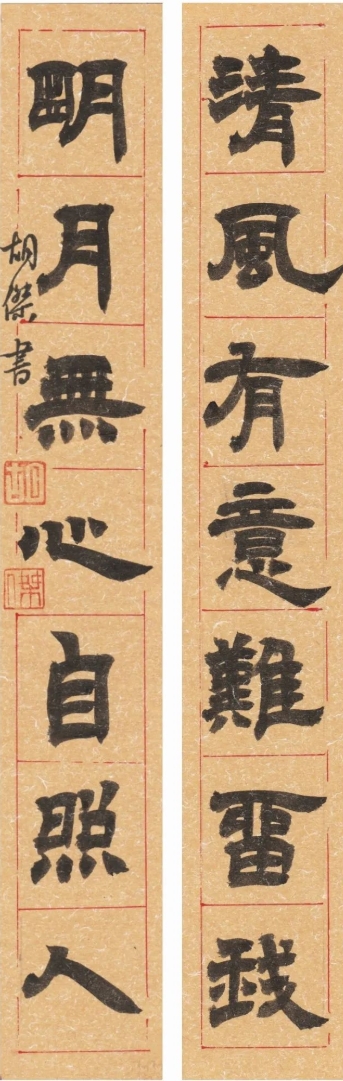 清風有意難留我
明月無心自照人
胡傑書
胡
傑